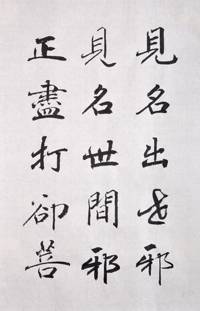 見名出世邪
見名世間邪
正盡打卻菩